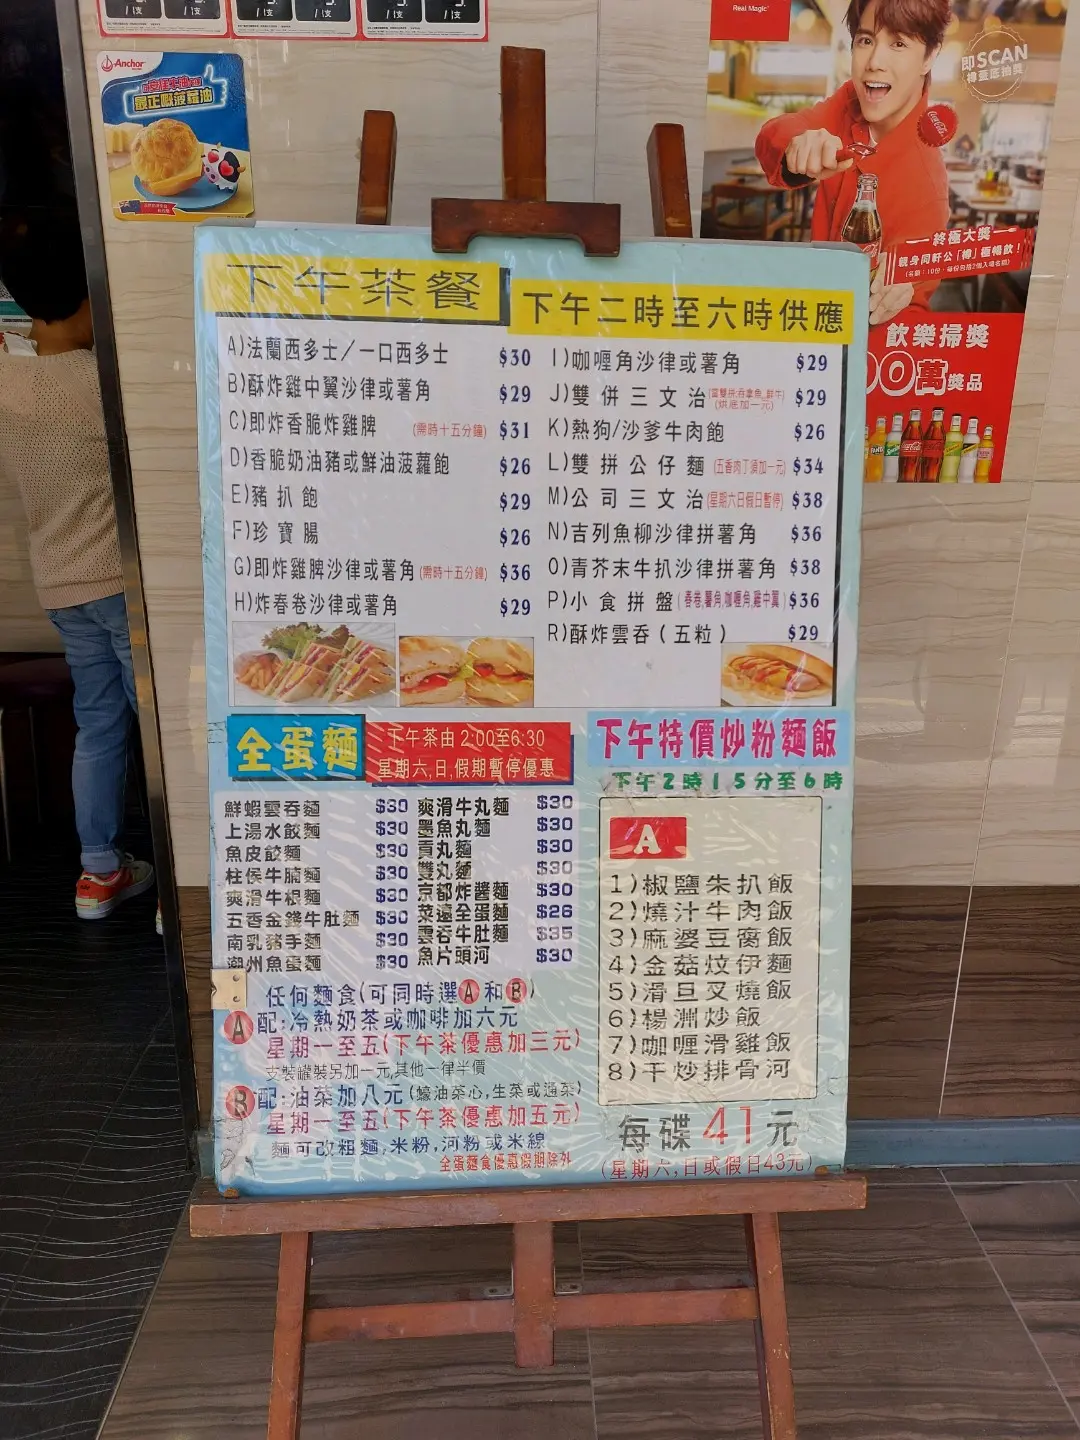 /1支
/1支
/1支
/1支
Anchor
最正嘅菠蘿油
Real Magic
即SCAN
樽蓋底抽獎
Coca-Cola
終極大獎
親身同軒公「樽」極暢飲！
歡樂掃獎
00萬獎品
下午茶餐
下午二時至六時供應
A)法蘭西多士／一口西多士 $30
B)酥炸雞中翼沙律或薯角 $29
C)即炸香脆炸雞脾 (需時十五分鐘) $31
D)香脆奶油豬或鮮油菠蘿飽 $26
E)豬扒飽 $29
F)珍寶腸 $26
G)即炸雞脾沙律或薯角 (需時十五分鐘) $36
H)炸春卷沙律或薯角 $29
I)咖喱角沙律或薯角 $29
J)雙併三文治 (烘底加一元) $29
K)熱狗/沙爹牛肉飽 $26
L)雙拼公仔麵 (五香肉丁須加一元) $34
M)公司三文治 (星期六日假日暫停) $38
N)吉列魚柳沙律拼薯角 $36
O)青芥末牛扒沙律拼薯角 $38
P)小食拼盤 (春卷,薯角,咖喱角,雞中翼) $36
R)酥炸雲吞(五粒) $29
全蛋麵
下午茶由 2:00至6:30
星期六,日,假期暫停優惠
鮮蝦雲吞麵 $30
上湯水餃麵 $30
魚皮餃麵 $30
柱侯牛腩麵 $30
爽滑牛根麵 $30
五香金錢牛肚麵 $30
南乳豬手麵 $30
潮州魚蛋麵 $30
爽滑牛丸麵 $30
墨魚丸麵 $30
貢丸麵 $30
雙丸麵 $30
京都炸醬麵 $30
菜遠全蛋麵 $26
雲吞牛肚麵 $35
魚片頭河 $30
任何麵食(可同時選A和B)
A 配:冷熱奶茶或咖啡加六元
星期一至五(下午茶優惠加三元)
支裝罐裝另加一元,其他一律半價
B 配:油菜加八元(蠔油菜心,生菜或通菜)
星期一至五(下午茶優惠加五元)
麵可改粗麵,米粉,河粉或米線
全蛋麵食優惠假期除外
下午特價炒粉麵飯
下午2時15分至6時
A
1)椒鹽朱扒飯
2)燒汁牛肉飯
3)麻婆豆腐飯
4)金菇炆伊麵
5)滑旦叉燒飯
6)楊洲炒飯
7)咖喱滑雞飯
8)干炒排骨河
每碟41元
(星期六,日或假日43元)